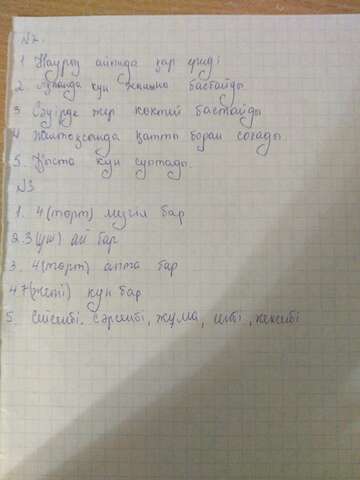 N2.
1 Наурыз айында қар ериді
2. Ақпанда күн жылына бастайды
3 Сәуірде жер көктей бастайды
4 Желтоқсанда қатты боран соғады
5. Қыста күн суытады.
N3
1. 4(төрт) мезгіл бар
2.3(үш) ай бар
3. 4(төрт) апта бар
4 7(жеті) күн бар
5. Сейсенбі. Сәрсенбі, жұма, сенбі, жексенбі